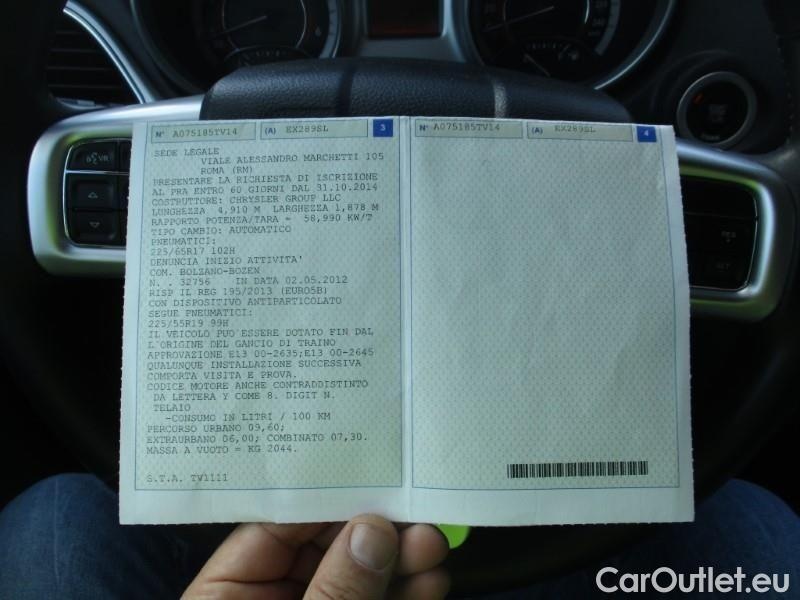 N° A075185TV14 (A) EX289SL 3
SEDE LEGALE
VIALE ALESSANDRO MARCHETTI 105
ROMA (RM)
PRESENTARE LA RICHIESTA DI ISCRIZIONE
AL PRA ENTRO 60 GIORNI DAL 31.10.2014
COSTRUTTORE: CHRYSLER GROUP LLC
LUNGHEZZA 4,910 M LARGHEZZA 1,878 M
RAPPORTO POTENZA/TARA = 58,990 KW/T
TIPO CAMBIO: AUTOMATICO
PNEUMATICI:
225/65R17 102H
DENUNCIA INIZIO ATTIVITA'
COM. BOLZANO-BOZEN
N. . 32756 IN DATA 02.05.2012
RISP IL REG 195/2013 (EURO5B)
CON DISPOSITIVO ANTIPARTICOLATO
SEGUE PNEUMATICI:
225/55R19 99H
IL VEICOLO PUO'ESSERE DOTATO FIN DAL
L'ORIGINE DEL GANCIO DI TRAINO
APPROVAZIONE E13 00-2635;E13 00-2645
QUALUNQUE INSTALLAZIONE SUCCESSIVA
COMPORTA VISITA E PROVA.
CODICE MOTORE ANCHE CONTRADDISTINTO
DA LETTERA Y COME 8. DIGIT N.
TELAIO
-CONSUMO IN LITRI / 100 KM
PERCORSO URBANO 09,60;
EXTRAURBANO 06,00; COMBINATO 07,30.
MASSA A VUOTO = KG 2044.
S.T.A. TV1111
N° A075185TV14 (A) EX289SL 4
VR
RES
SET
CarOutlet.eu